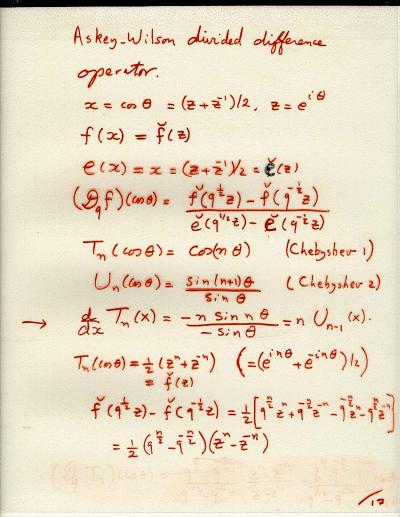 Askey-Wilson divided difference
operator.
x = cos θ = (z + z⁻¹)/2, z = e^{iθ}
f(x) = f̆(z)
e(x) = x = (z + z⁻¹)/2 = ĕ(z)
(𝒟_q f)(cos θ) = (f̆(q^{1/2}z) - f̆(q^{-1/2}z)) / (ĕ(q^{1/2}z) - ĕ(q^{-1/2}z))
T_n(cos θ) = cos(n θ) (Chebyshev 1)
U_n(cos θ) = sin(n+1)θ / sin θ (Chebyshev 2)
→ d/dx T_n(x) = -n sin n θ / -sin θ = n U_{n-1}(x).
T_n(cos θ) = 1/2 (zⁿ + z⁻ⁿ) (= (e^{inθ} + e^{-inθ})/2)
= f̆(z)
f̆(q^{1/2}z) - f̆(q^{-1/2}z) = 1/2 [q^{n/2}zⁿ + q^{-n/2}z⁻ⁿ - q^{-n/2}zⁿ - q^{n/2}z⁻ⁿ]
= 1/2 (q^{n/2} - q^{-n/2})(zⁿ - z⁻ⁿ)
(𝒟_q T_n)(cos θ) =
/17